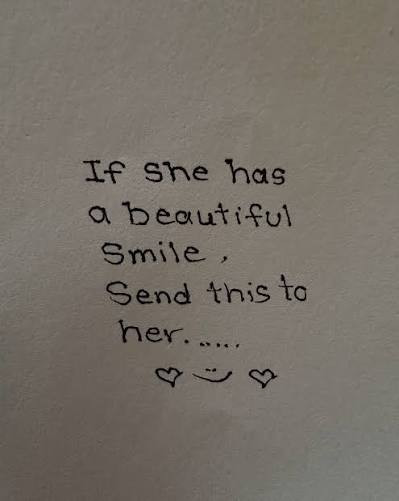 If she has
a beautiful
Smile,
Send this to
her......